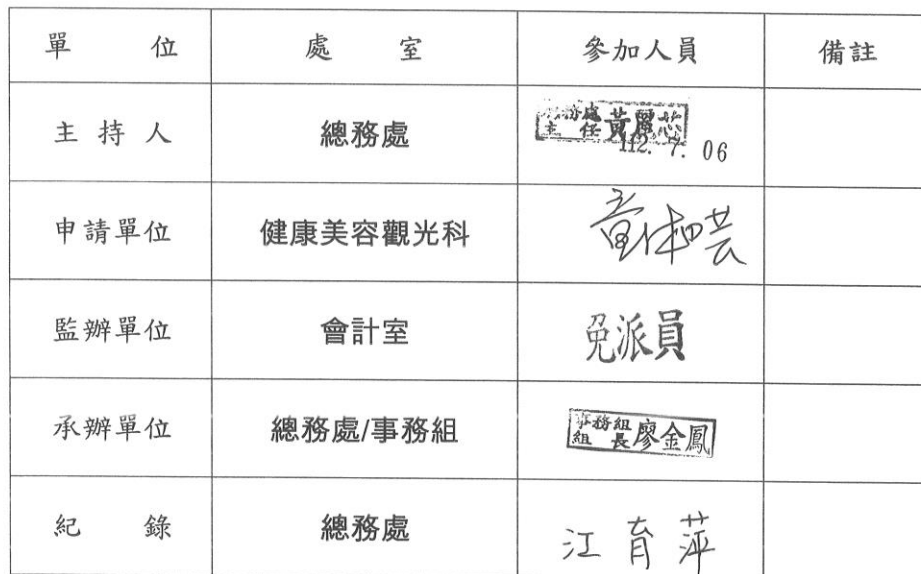 單 位 處 室 參加人員 備註
主 持 人 總務處
主 任 黃麗芯
112. 7. 06
申請單位 健康美容觀光科
監辦單位 會計室 免派員
事務組
承辦單位 總務處/事務組 組 長 廖金鳳
紀 錄 總務處 江育萍